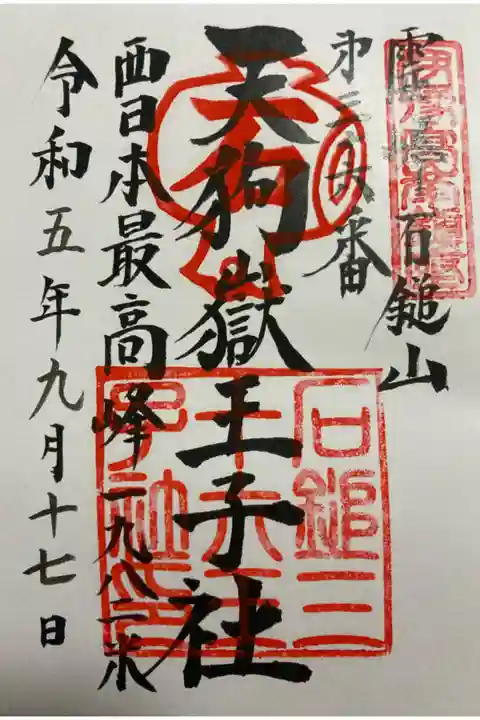 霊峰石鎚山
第三十六番
天狗嶽王子社
西日本最高峰一九八二米
令和五年九月十七日
石鎚三
十六王
子社印